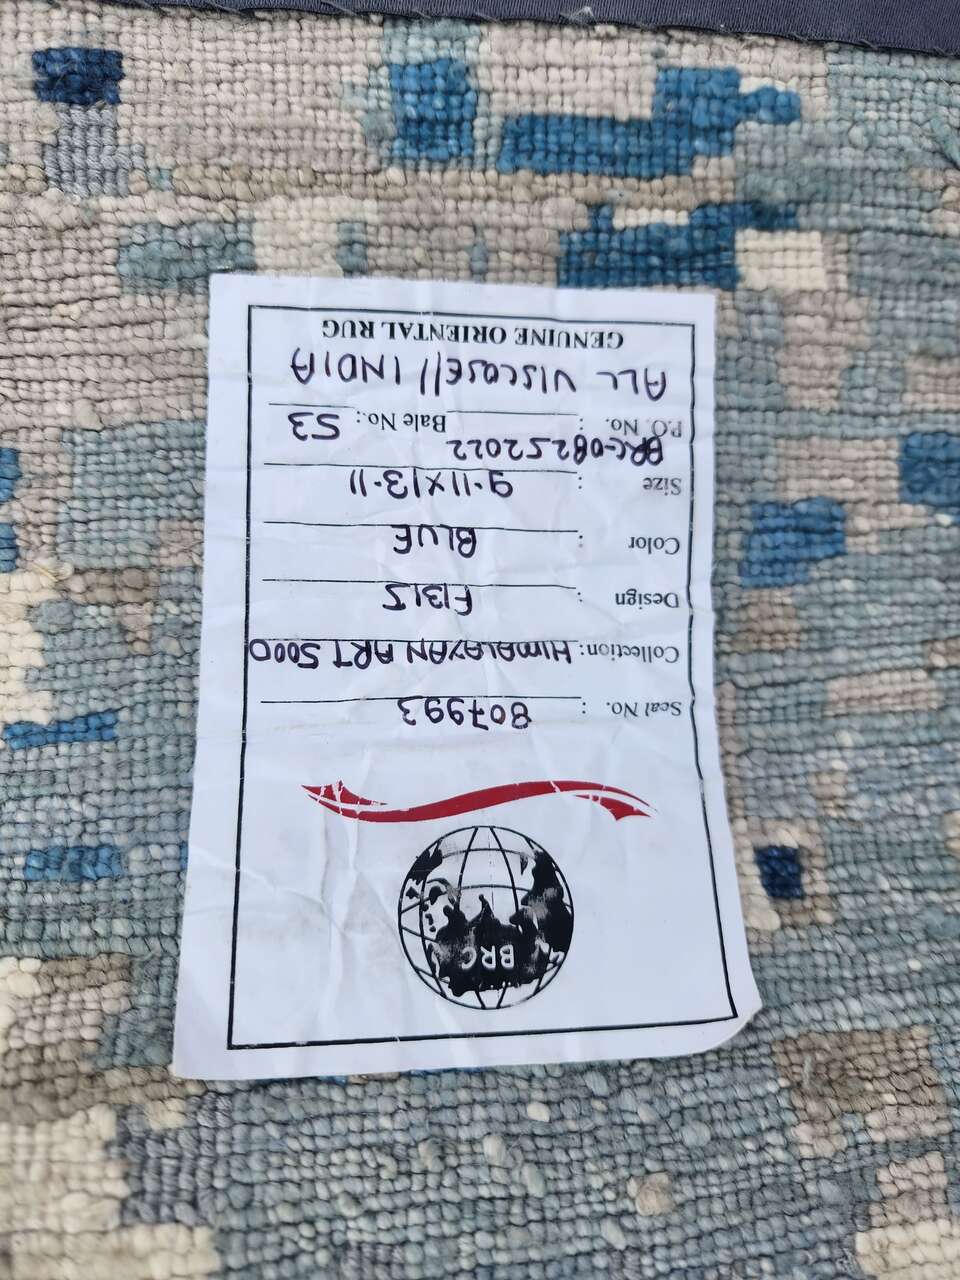 BRC
Seal No. : 807993
Collection : HIMALAYAN ART 5000
Design : F1315
Color : BLUE
Size : 9.11X13.11
BRC-08252022
P.O. No. : Bale No.: 53
ALL VISCOSE // INDIA
GENUINE ORIENTAL RUG